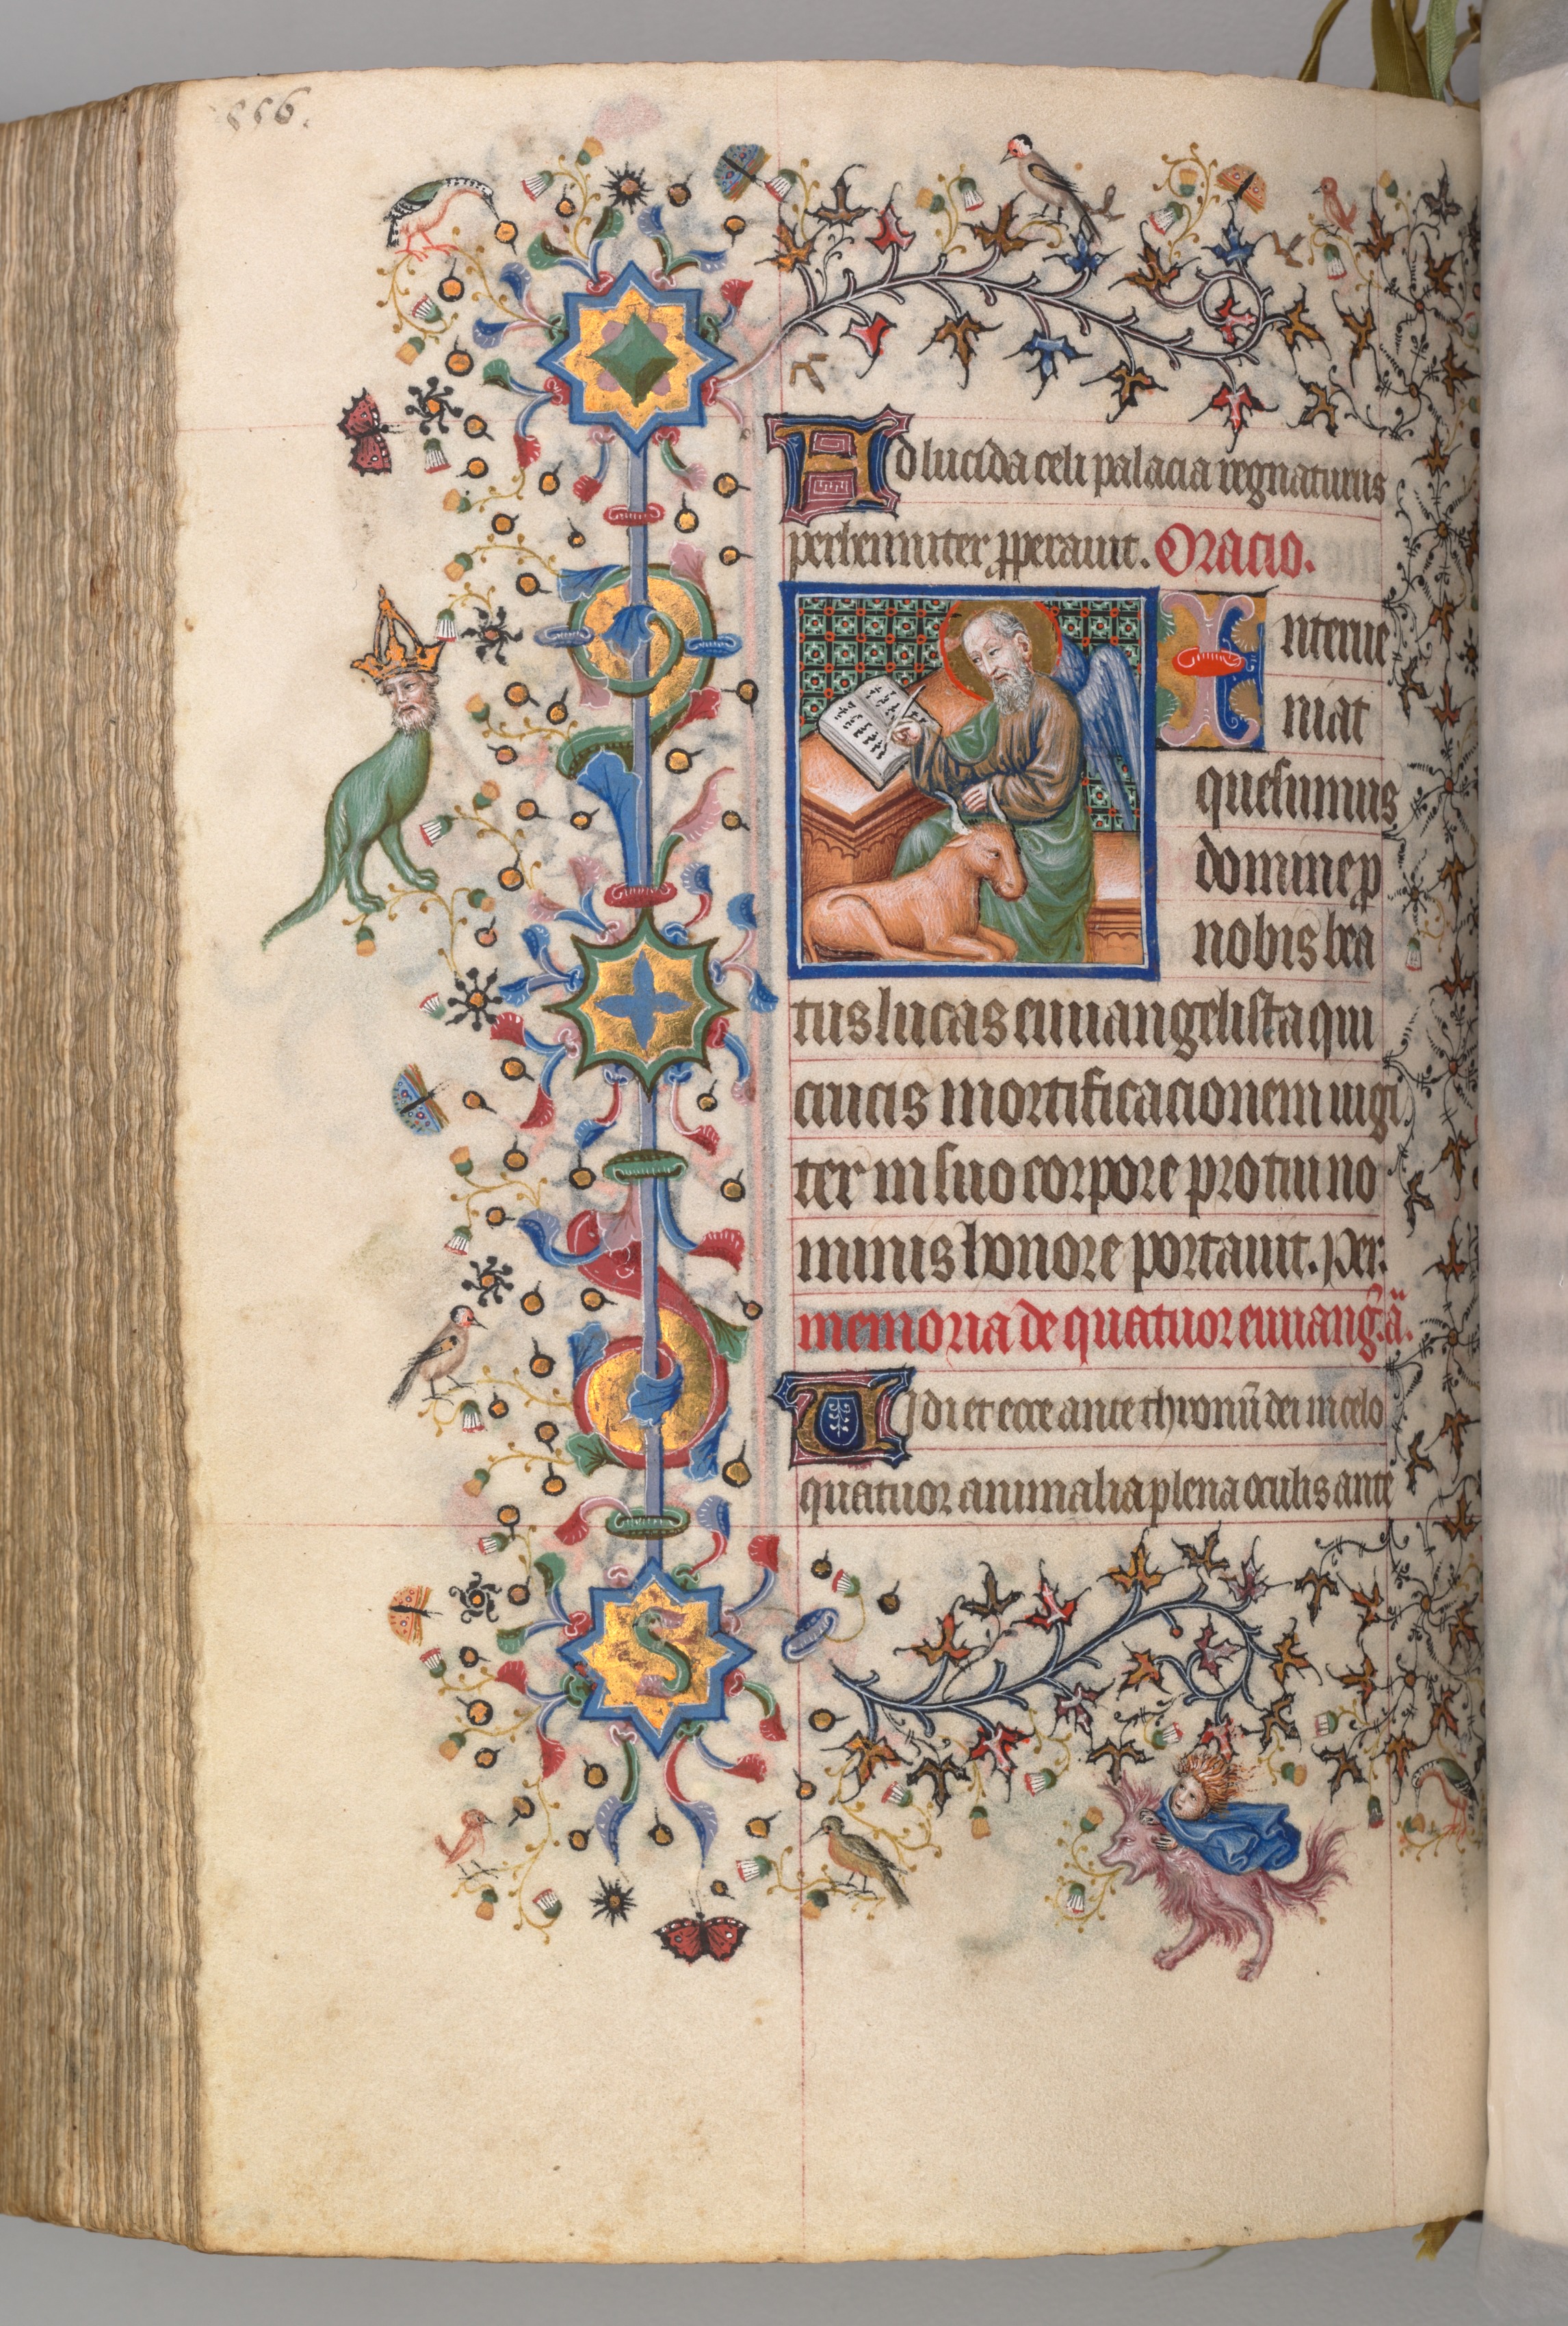 556.
Ad lucida celi palacia regnaturus
perhenniter pperauit. Oracio.
Interue
niat
quesumus
domine p
nobis bea
tus lucas euuangelista qui
crucis mortificacionem iugi
ter in suo corpore pro tui no
minis honore portauit. Per.
memoria de quatuor euuang. a.
Vidi et ecce ante thronū dei in celo
quatuor animalia plena oculis ante